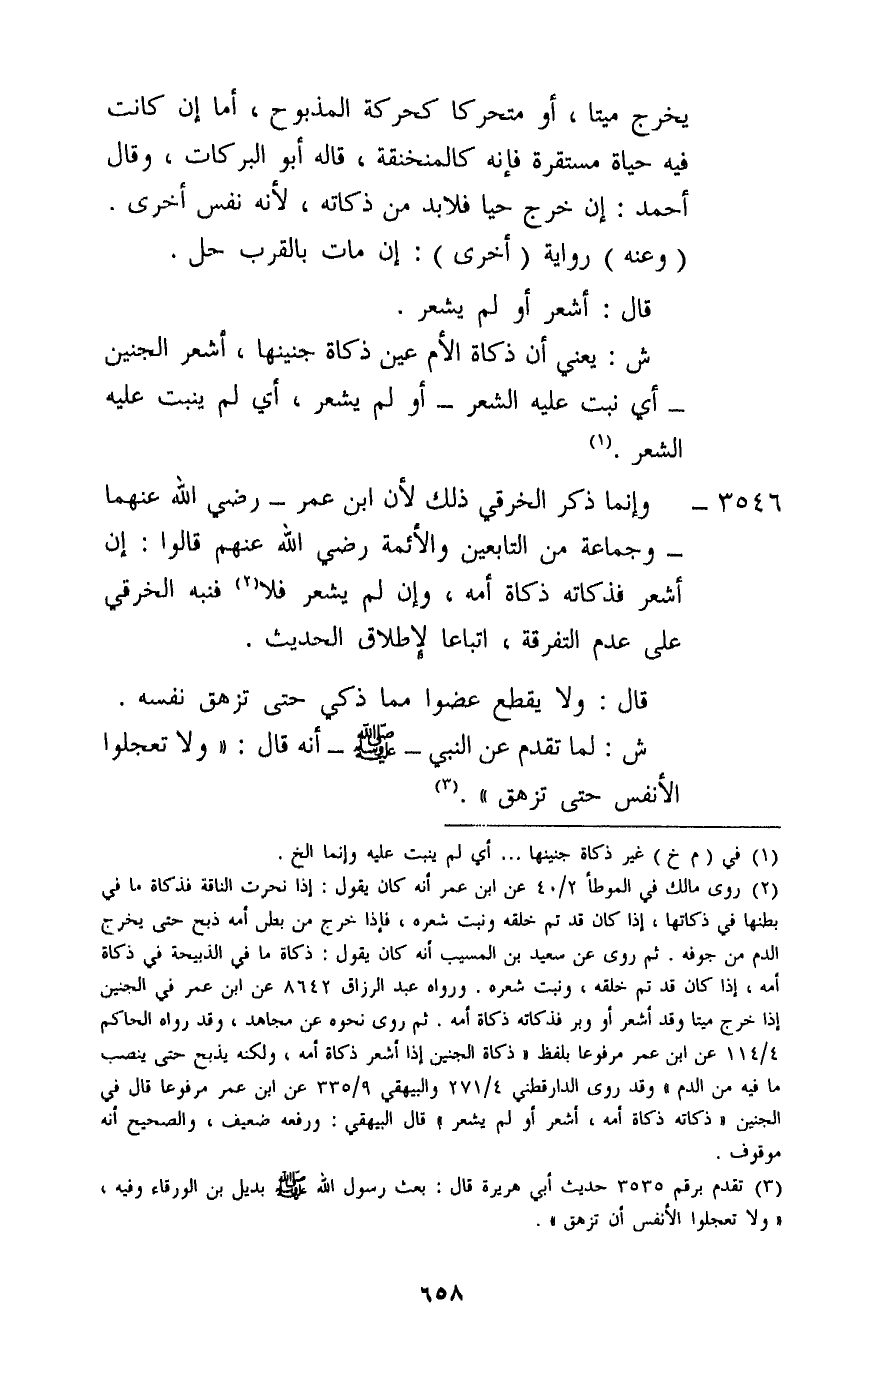 يخرج ميتا ، أو متحركا كحركة المذبوح ، أما إن كانت
فيه حياة مستقرة فإنه كالمنخنقة ، قاله أبو البركات ، وقال
أحمد : إن خرج حيا فلابد من ذكاته ، لأنه نفس أخرى .
( وعنه ) رواية ( أخرى ) : إن مات بالقرب حل .
قال : أشعر أو لم يشعر .
ش : يعني أن ذكاة الأم عين ذكاة جنينها ، أشعر الجنين
ــ أي نبت عليه الشعر ــ أو لم يشعر ، أي لم ينبت عليه
الشعر .(١)
٣٥٤٦ ــ وإنما ذكر الخرقي ذلك لأن ابن عمر ــ رضي الله عنهما
ــ وجماعة من التابعين والأئمة رضي الله عنهم قالوا : إن
أشعر فذكاته ذكاة أمه ، وإن لم يشعر فلا(٢) فنبه الخرقي
على عدم التفرقة ، اتباعا لإطلاق الحديث .
قال : ولا يقطع عضوا مما ذكي حتى تزهق نفسه .
ش : لما تقدم عن النبي ــ ﷺ ــ أنه قال : « ولا تعجلوا
الأنفس حتى تزهق » .(٣)
(١) في ( م خ ) غير ذكاة جنينها ... أي لم ينبت عليه وإنما الخ .
(٢) روى مالك في الموطأ ٤٠/٢ عن ابن عمر أنه كان يقول : إذا نحرت الناقة فذكاة ما في
بطنها في ذكاتها ، إذا كان قد تم خلقه ونبت شعره ، فإذا خرج من بطن أمه ذبح حتى يخرج
الدم من جوفه . ثم روى عن سعيد بن المسيب أنه كان يقول : ذكاة ما في الذبيحة في ذكاة
أمه ، إذا كان قد تم خلقه ، ونبت شعره . ورواه عبد الرزاق ٨٦٤٢ عن ابن عمر في الجنين
إذا خرج ميتا وقد أشعر أو وبر فذكاته ذكاة أمه . ثم روى نحوه عن مجاهد ، وقد رواه الحاكم
١١٤/٤ عن ابن عمر مرفوعا بلفظ « ذكاة الجنين إذا أشعر ذكاة أمه ، ولكنه يذبح حتى ينصب
ما فيه من الدم » وقد روى الدارقطني ٢٧١/٤ والبيهقي ٣٣٥/٩ عن ابن عمر مرفوعا قال في
الجنين « ذكاته ذكاة أمه ، أشعر أو لم يشعر » قال البيهقي : ورفعه ضعيف ، والصحيح أنه
موقوف .
(٣) تقدم برقم ٣٥٣٥ حديث أبي هريرة قال : بعث رسول الله ﷺ بديل بن الورقاء وفيه ،
« ولا تعجلوا الأنفس أن تزهق » .
٦٥٨